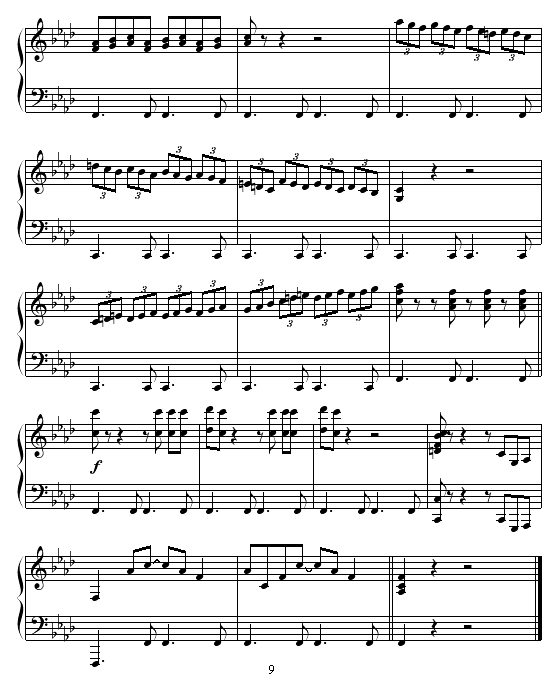 3 3 3 3
3 3 3 3 3 3 3 3
3 3 3 3 3 3 3 3
f
9